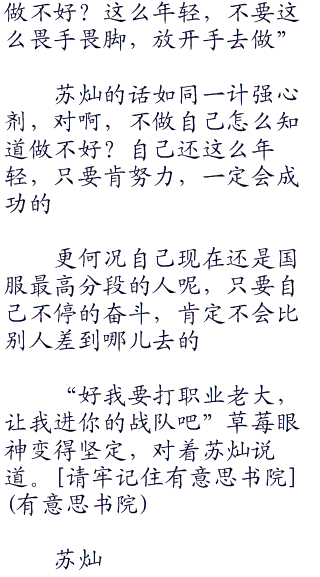 做不好？这么年轻，不要这
么畏手畏脚，放开手去做”
苏灿的话如同一计强心
剂，对啊，不做自己怎么知
道做不好？自己还这么年
轻，只要肯努力，一定会成
功的
更何况自己现在还是国
服最高分段的人呢，只要自
己不停的奋斗，肯定不会比
别人差到哪儿去的
“好我要打职业老大，
让我进你的战队吧”草莓眼
神变得坚定，对着苏灿说
道。[请牢记住有意思书院]
(有意思书院)
苏灿